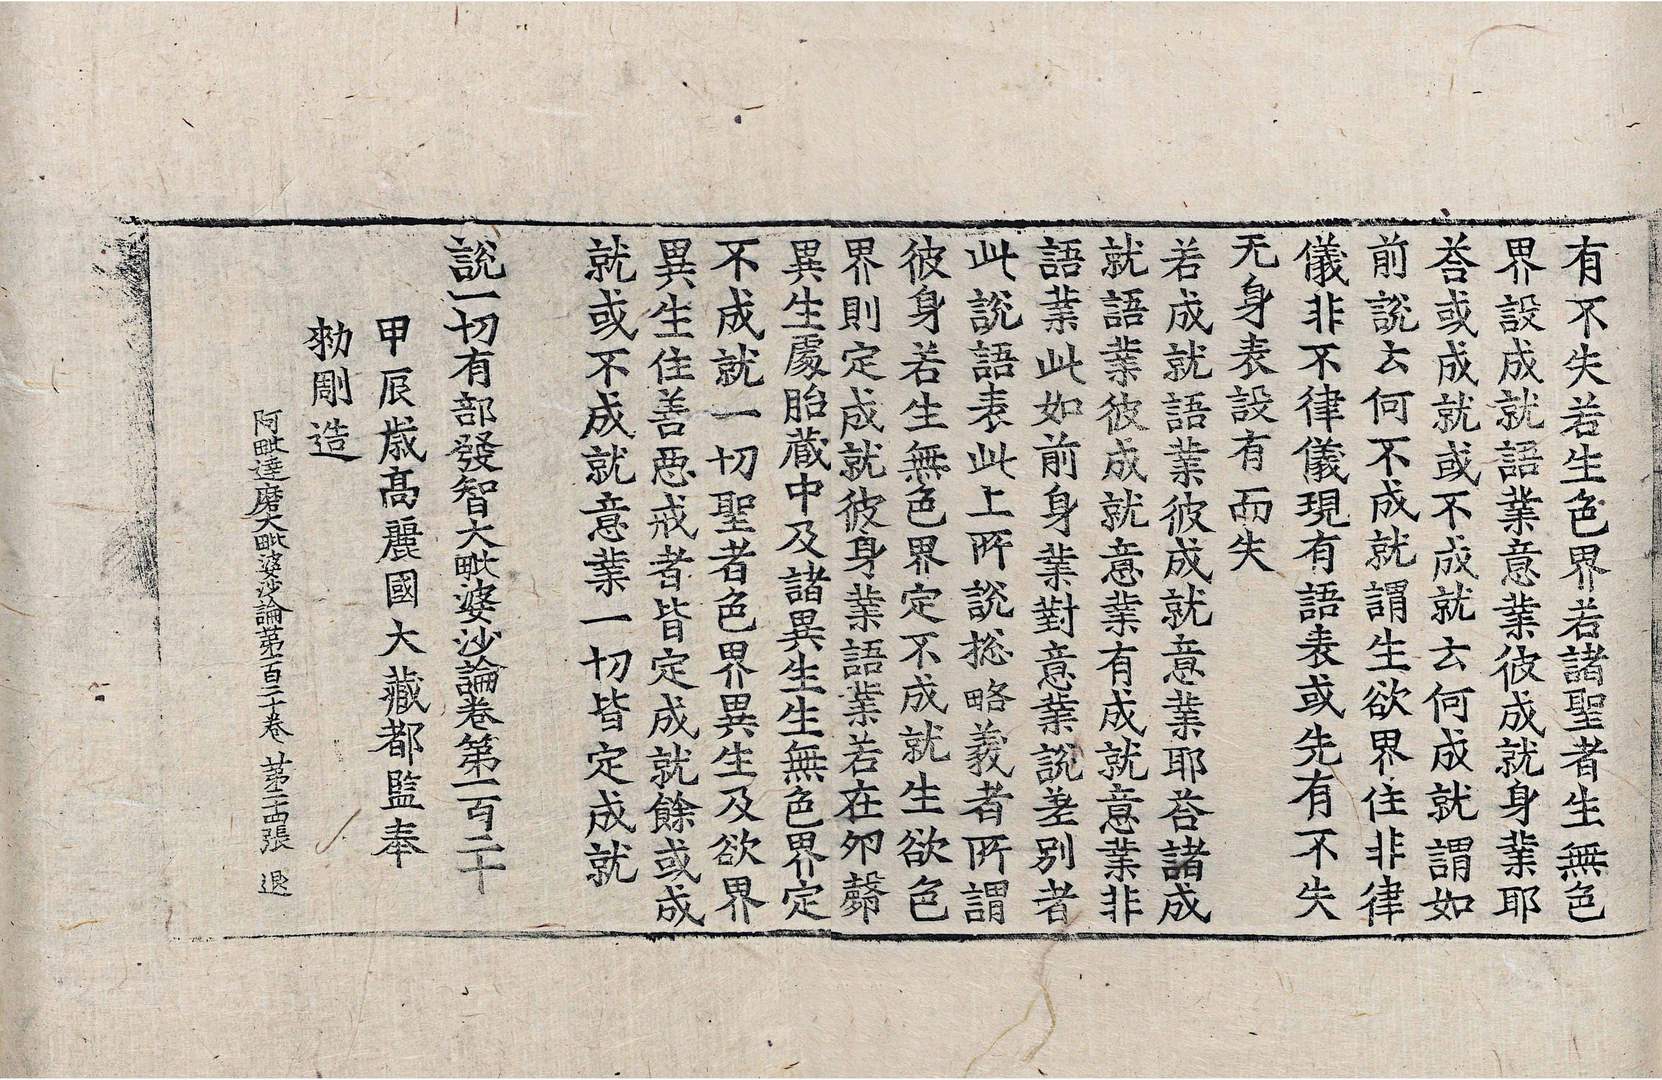 有不失若生色界若諸聖者生無色
界設成就語業意業彼成就身業耶
荅或成就或不成就去何成就謂如
前說去何不成就謂生欲界住非律
儀非不律儀現有語表或先有不失
无身表設有而失
若成就語業彼成就意業耶荅諸成
就語業彼成就意業有成就意業非
語業此如前身業對意業說差別者
此說語表此上所說揔略義者所謂
彼身若生無色界定不成就生欲色
界則定成就彼身業語業若在夘㲉
異生處胎藏中及諸異生生無色界定
不成就一切聖者色界異生及欲界
異生住善惡戒者皆定成就餘或成
就或不成就意業一切皆定成就
說一切有部發智大毗婆沙論卷第一百二十
甲辰歲高麗國大藏都監奉
勑彫造
阿毗達磨大毗婆沙論第一百二十卷 第二十四張 退